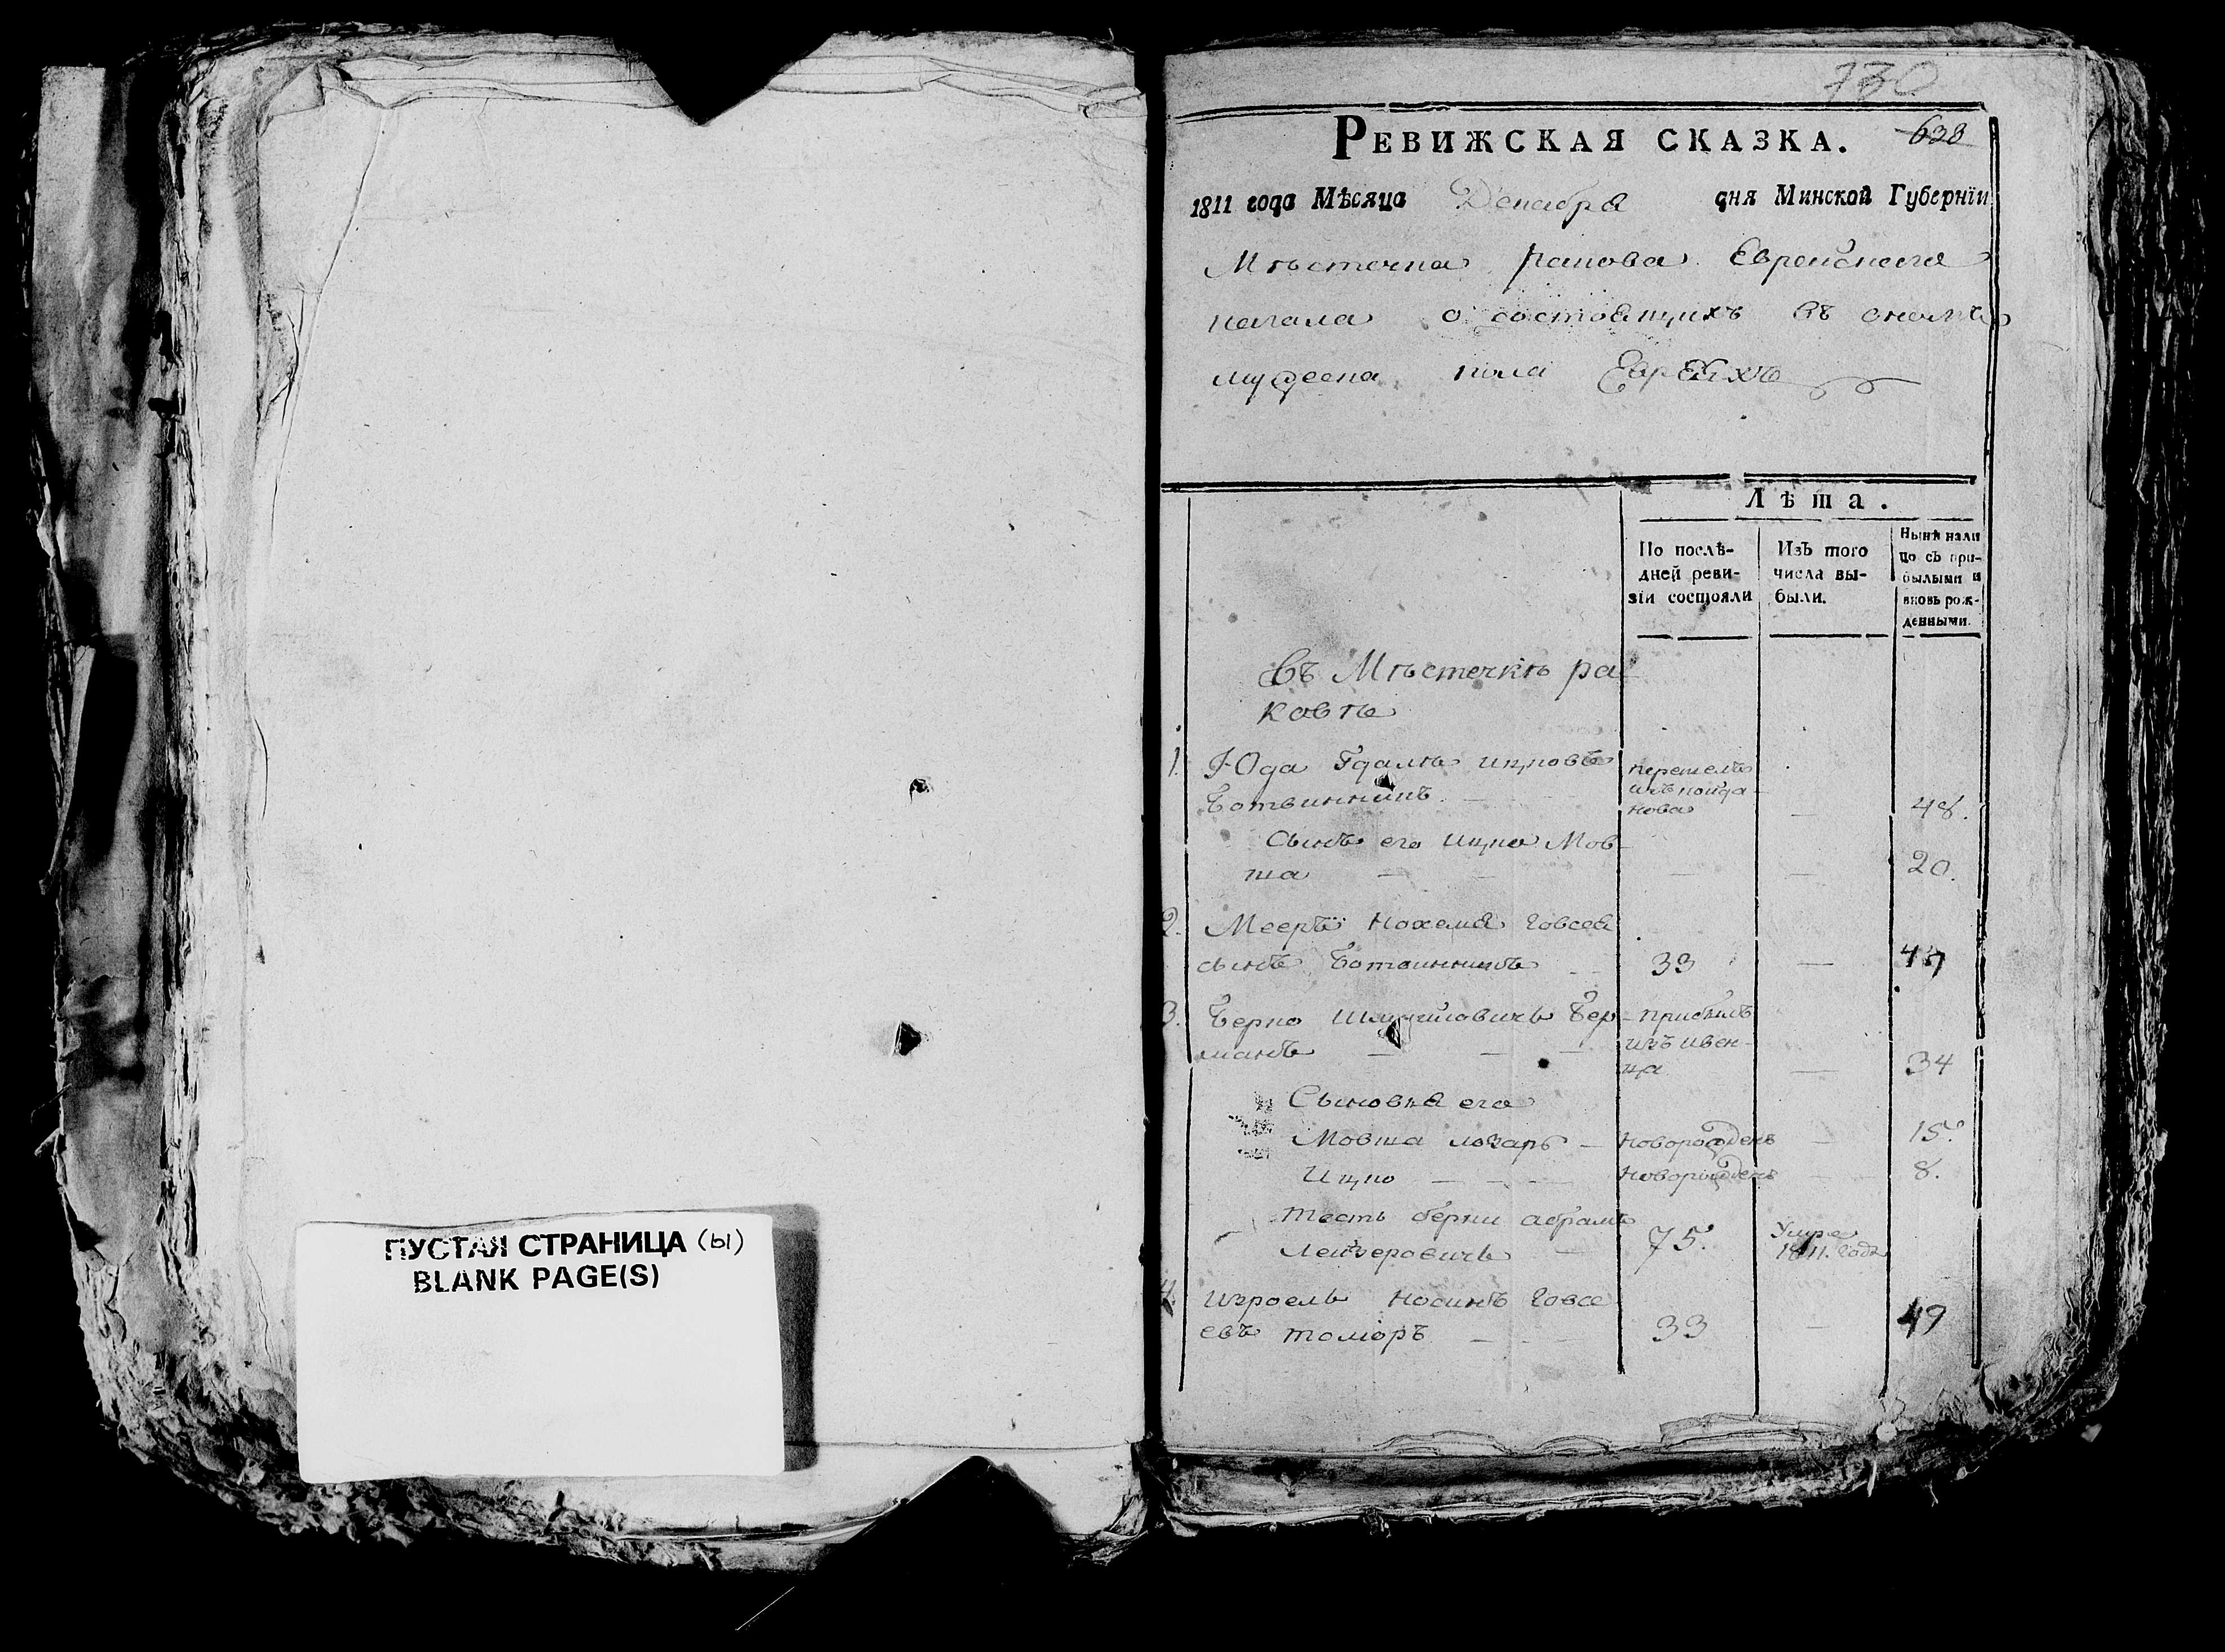 ПУСТАЯ СТРАНИЦА (Ы)
BLANK PAGE(S)
730
638
РЕВИЖСКАЯ СКАЗКА.
1811 года Мѣсяца Декабря дня Минской Губернїи
Мѣстечка ракова Еврейскага
кагала о состоящихъ въ ономъ
мужеска пола Евреяхъ
Лѣта.
По послѣ-
дней реви-
зїи состояли
Изъ того
числа вы-
были.
Нынѣ нали
цо съ при-
былыми и
вновь рож-
денными.
Въ Мѣстечкѣ ра
ковѣ
1. Юда Гдаль ицковъ перешелъ
изъ койда
Ботвинникъ нова — 48.
Сынъ его Ицко Мов-
ша — — — 20.
2. Мееръ Нохемя Говсея
сынъ Ботвинникъ 33 — 47
3. Берко Шмуйловичъ Бер- прибылъ
манъ — — — изъ ивен-
ца — 34
Сыновья его
Мовша лозаръ — новорожденъ — 15.
Ицко — — — новорожденъ — 8.
тесть берки абрамъ
Лейзеровичъ — 75. Умре
1811. года
4. израель носинъ Говсе
евъ — — 33 — 49